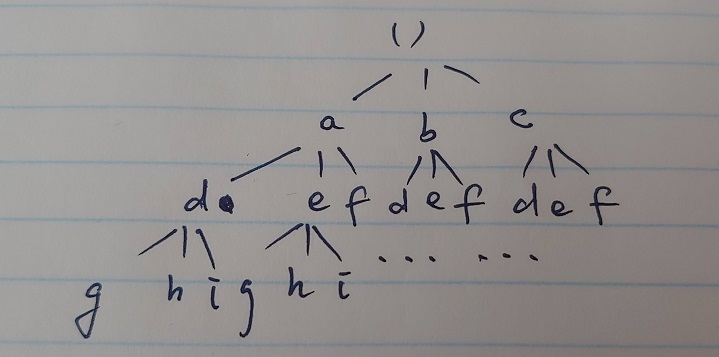 ()
a b c
d e f d e f d e f
g h i g h i ... ...